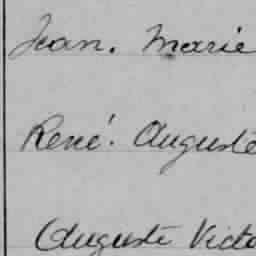 Jean. Marie
René. Auguste
Auguste Victo